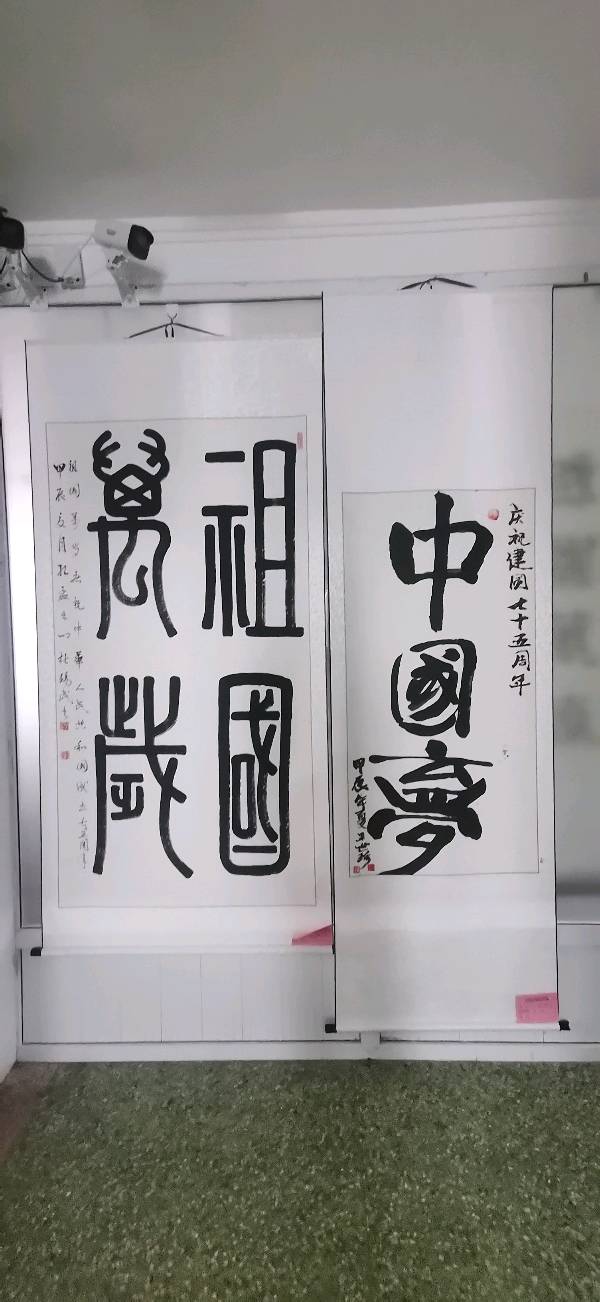 庆祝建国七十五周年
中國夢
甲辰年夏
祖國
萬歲
祖國萬岁 庆祝中華人民共和国成立七十五周年
甲辰夏月